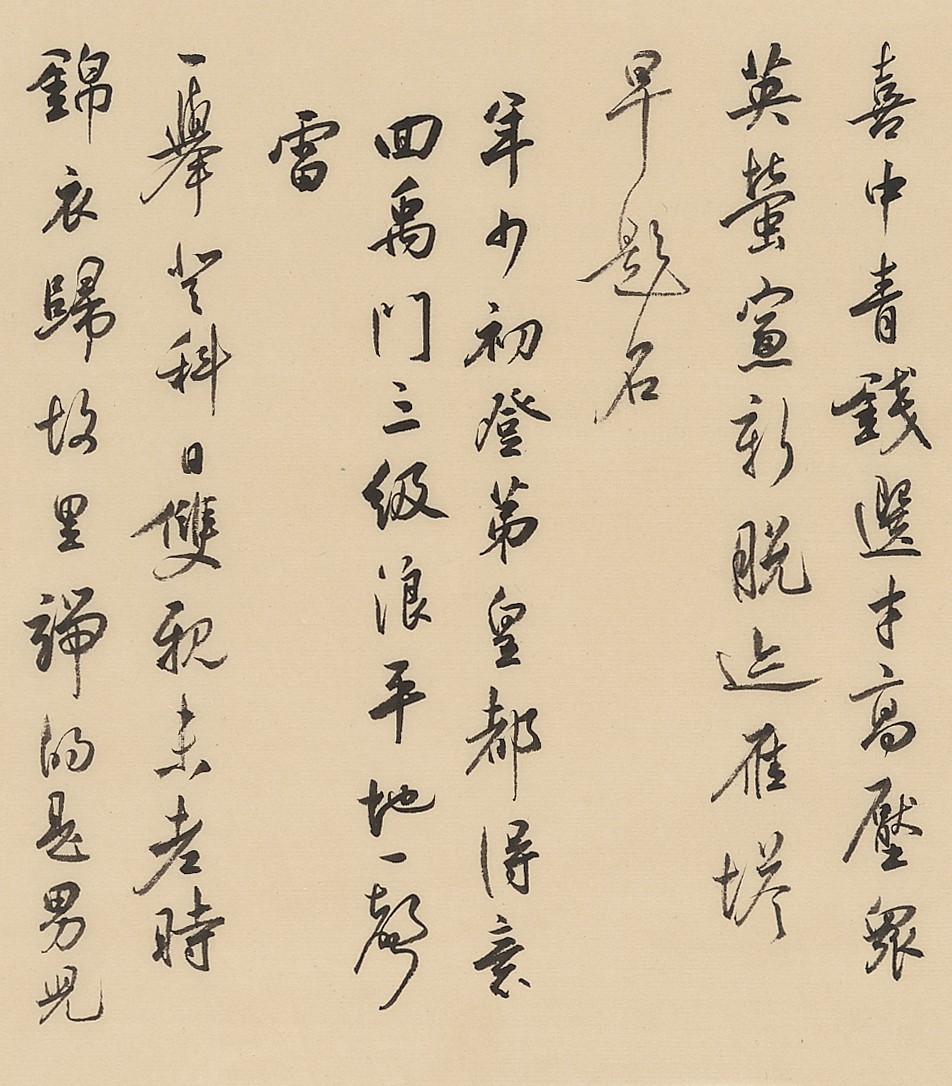 喜中青錢選才高壓衆
英螢窻新脫迹雁塔
早題名
年少初登第皇都得意
囬禹門三級浪平地一聲
雷
一舉登科日雙親未老時
錦衣歸故里端的是男兒